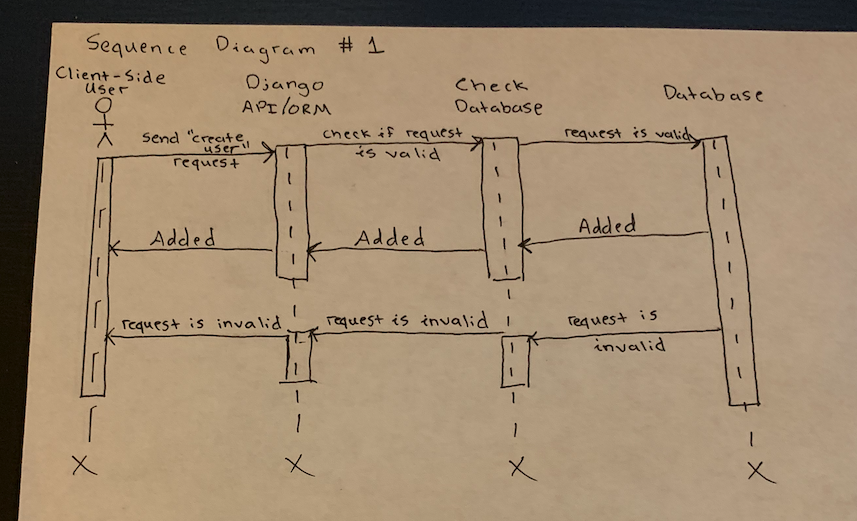 Sequence Diagram # 1
Client-Side
User
Django
API/ORM
Check
Database
Database
Send "create
user"
request
check if request
is valid
request is valid
Added
Added
Added
request is invalid
request is invalid
request is
invalid
X
X
X
X